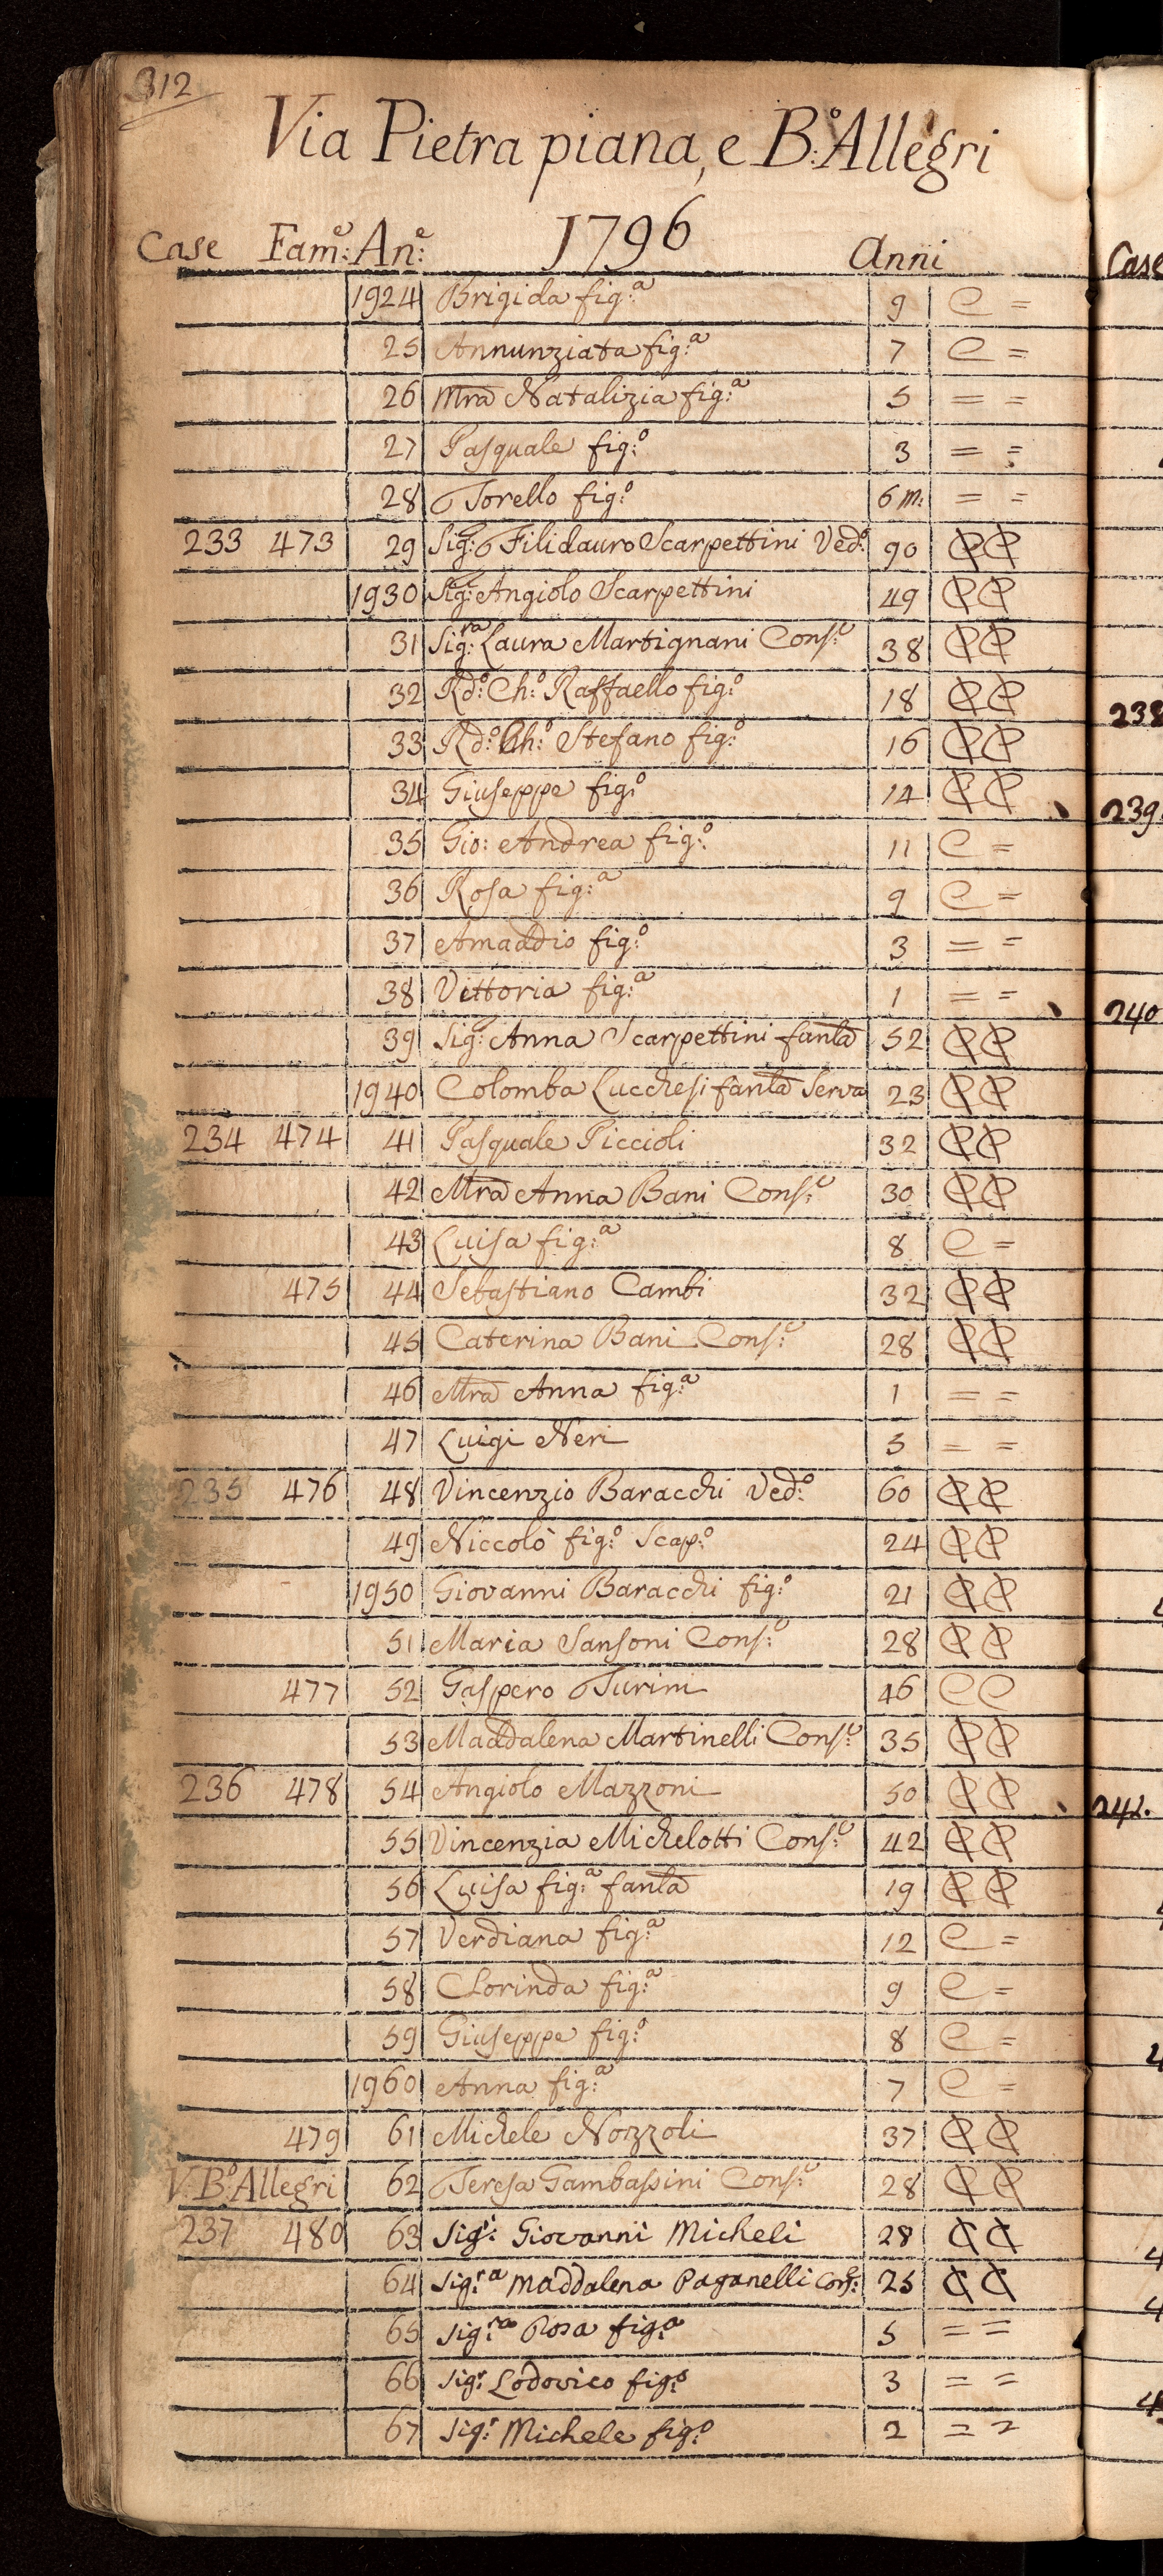 312
Via Pietra piana, e B:º Allegri
Case Fam:e An:e 1796 Anni
1924 Brigida fig:a 9 C =
25 Annunziata fig:a 7 C =
26 Mra Natalizia fig:a 5 = =
27 Pasquale fig:o 3 = =
28 Torello fig:o 6 m: = =
233 473 29 Sig:r Filidauro Scarpettini Ved:o 90 C C
1930 Sig:r Angiolo Scarpettini 49 C C
31 Sig:ra Laura Martignani Cons:e 38 C C
32 Rd:o Ch:o Raffaello fig:o 18 C C
33 Rd:o Ch:o Stefano fig:o 16 C C
34 Giuseppe fig:o 14 C C
35 Gio: Andrea fig:o 11 C =
36 Rosa fig:a 9 C =
37 Amaddio fig:o 3 = =
38 Vittoria fig:a 1 = =
39 Sig: Anna Scarpettini fanla 52 C C
1940 Colomba Lucchesi fanla Serva 23 C C
234 474 41 Pasquale Piccioli 32 C C
42 Mra Anna Bani Cons:e 30 C C
43 Luisa fig:a 8 C =
475 44 Sebastiano Cambi 32 C C
45 Caterina Bani Cons:e 28 C C
46 Mra Anna fig:a 1 = =
47 Luigi Neri 3 = =
235 476 48 Vincenzio Baracchi Ved:o 60 C C
49 Niccolò fig:o Scap:o 24 C C
1950 Giovanni Baracchi fig:o 21 C C
51 Maria Sansoni Cons:e 28 C C
477 52 Gaspero Turini 46 C C
53 Maddalena Martinelli Cons:e 35 C C
236 478 54 Angiolo Mazzoni 50 C C
55 Vincenzia Michelotti Cons:e 42 C C
56 Luisa fig:a fanla 19 C C
57 Verdiana fig:a 12 C =
58 Clorinda fig:a 9 C =
59 Giuseppe fig:o 8 C =
1960 Anna fig:a 7 C =
479 61 Michele Nozzoli 37 C C
V: B:º Allegri 62 Teresa Gambassini Cons:e 28 C C
237 480 63 Sig:r Giovanni Micheli 28 C C
64 Sig:ra Maddalena Paganelli Cons:e 25 C C
65 Sig:ra Rosa fig:a 5 = =
66 Sig:r Lodovico fig:o 3 = =
67 Sig:r Michele fig:o 2 = =
Case
238
239.
240